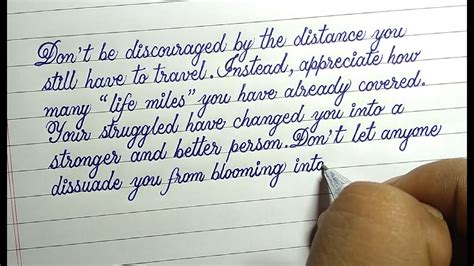 Don't be discouraged by the distance you
still have to travel. Instead, appreciate how
many "life miles" you have already covered.
Your struggled have changed you into a
stronger and better person. Don't let anyone
dissuade you from blooming into